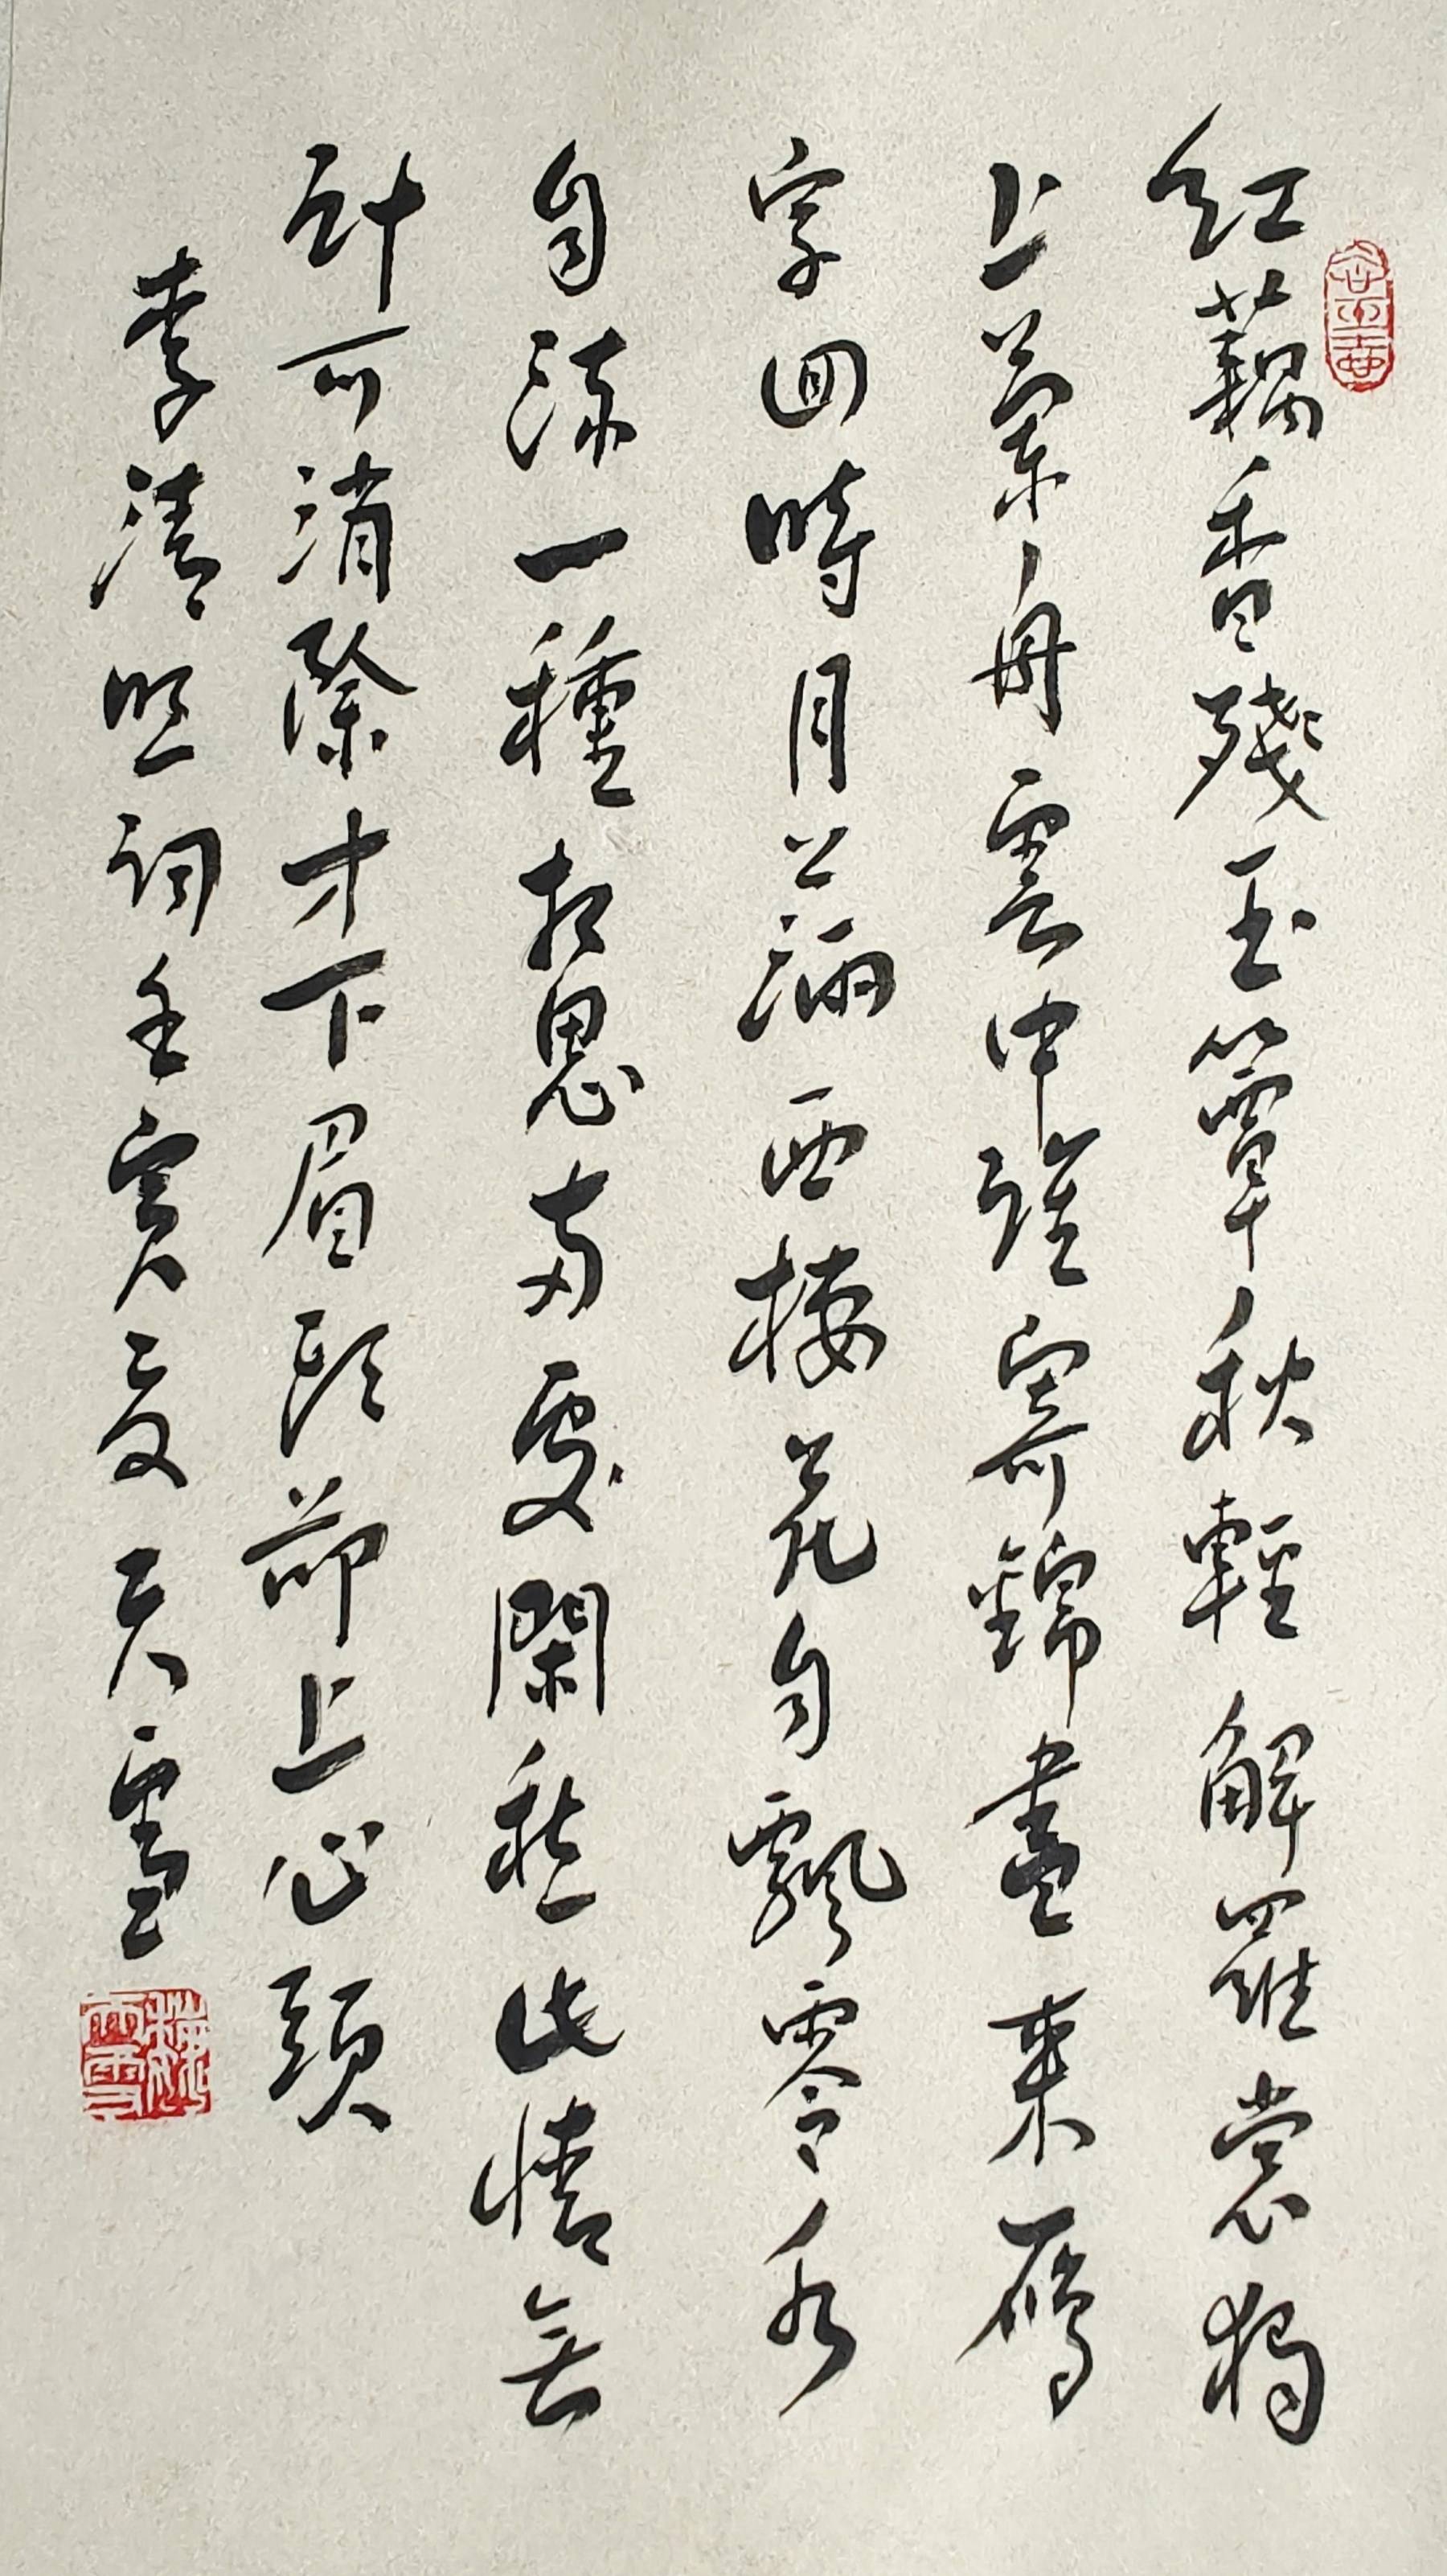 紅藕香殘玉簟秋輕解羅裳獨
上蘭舟雲中誰寄錦書來雁
字回時月滿西樓花自飄零水
自流一種相思兩處閑愁此情無
計可消除才下眉頭卻上心頭
李清照詞壬寅夏天雪